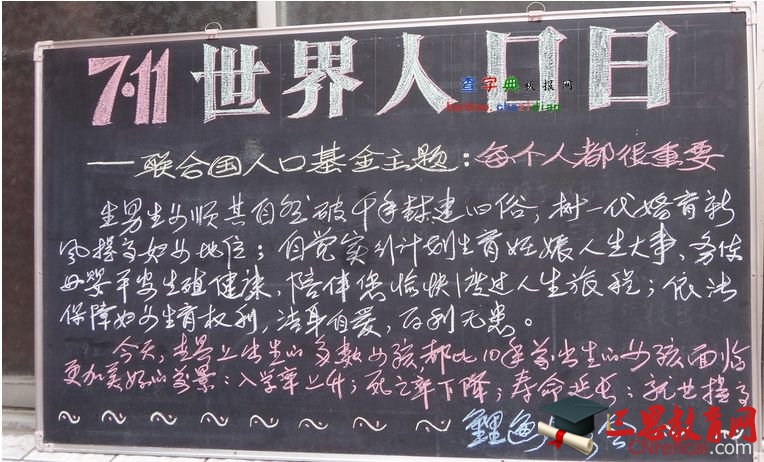 7·11世界人口日
查字典板报网
——联合国人口基金主题：每个人都很重要
生男生女顺其自然破千年封建旧俗，树一代婚育新
风提高妇女地位；自觉实行计划生育妊娠人生大事，务使
母婴平安生殖健康，陪伴您愉快渡过人生旅程；依法
保障妇女生育权利，洁身自爱，有利无患。
今天，世界上出生的多数女孩，都比10年前出生的女孩面临
更加美好的前景：入学率上升；死亡率下降；寿命延长；就业提高
鲤鱼
三思教育网